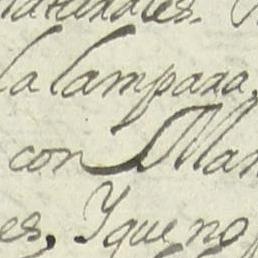 naturales.
la lampara,
con Man
es, Y que no